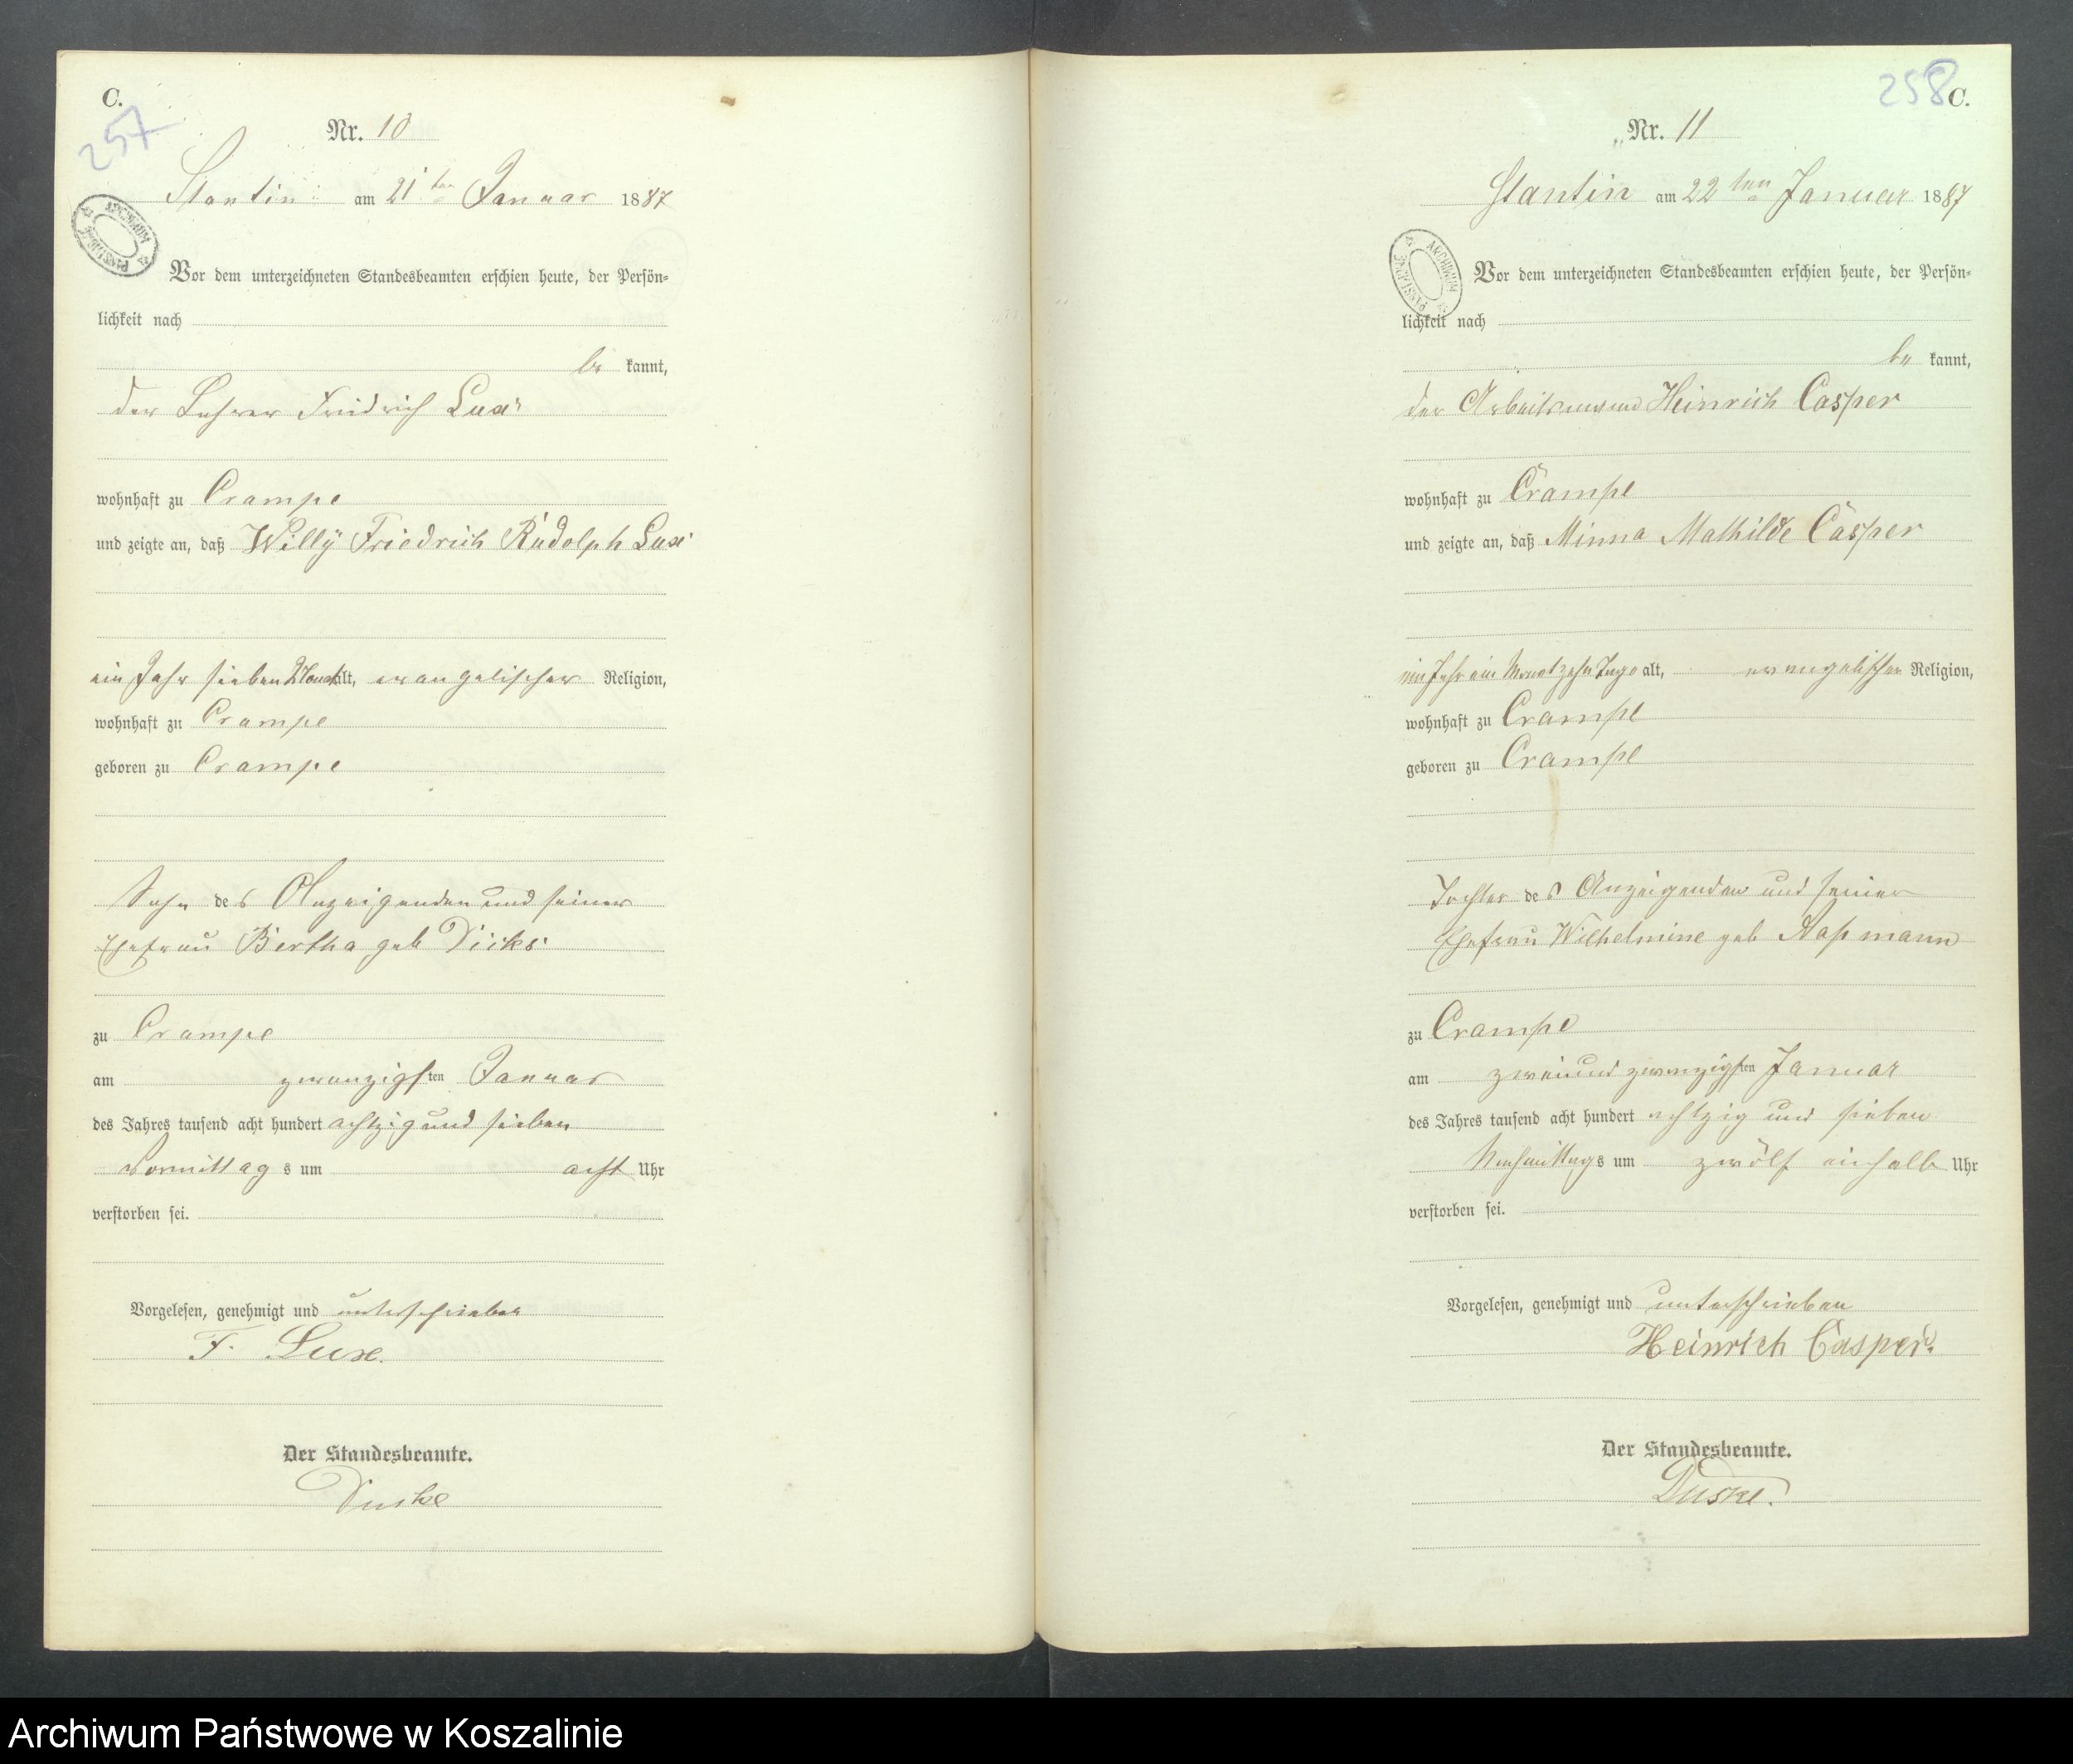 C.
257
Nr. 10
Stantin am 21ten Januar 1887
Vor dem unterzeichneten Standesbeamten erschien heute, der Persön-
lichkeit nach
be kannt,
der Lehrer Friedrich Luxe
wohnhaft zu Crampe
und zeigte an, daß Willy Friedrich Rudolph Luxe
ein Jahr sieben Monat alt, evangelischer Religion,
wohnhaft zu Crampe
geboren zu Crampe
Sohn des Anzeigenden und seiner
Ehefrau Bertha geb
zu Crampe
am zwanzigsten Januar
des Jahres tausend acht hundert achtzig und sieben
Vormittags um acht Uhr
verstorben sei.
Vorgelesen, genehmigt und unterschrieben
F. Luxe.
Der Standesbeamte.
Duske
ARCHIWUM PAŃSTWOWE
258
C.
Nr. 11
Stantin am 22ten Januar 1887
Vor dem unterzeichneten Standesbeamten erschien heute, der Persön-
lichkeit nach
be kannt,
der Arbeitsmann Heinrich Casper
wohnhaft zu Crampe
und zeigte an, daß Minna Mathilde Casper
ein Jahr ein Monat zehn Tage alt, evangelischer Religion,
wohnhaft zu Crampe
geboren zu Crampe
Tochter des Anzeigenden und seiner
Ehefrau Wilhelmine geb
zu Crampe
am zweiund zwanzigsten Januar
des Jahres tausend acht hundert achtzig und sieben
Nachmittags um zwölf einhalb Uhr
verstorben sei.
Vorgelesen, genehmigt und unterschrieben
Heinrich Casper.
Der Standesbeamte.
Duske.
ARCHIWUM PAŃSTWOWE
Archiwum Państwowe w Koszalinie